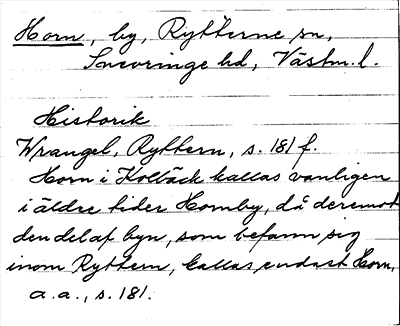 Horn, by, Rytterne sn,
Snevringe hd, Västm. l.
Historik
Wrangel, Ryttern, s. 181 f.
Horn i Kolbäck kallas vanligen
i äldre tider Hornby, då deremot
den del af byn, som befann sig
inom Ryttern, kallas endast Horn,
a.a., s. 181.